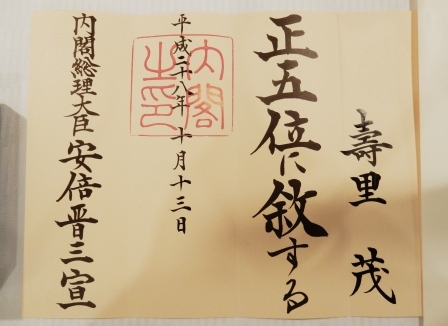 壽里 茂
正五位に敘する
平成二十八年十月十三日
内閣之印
内閣総理大臣 安倍晋三 宣